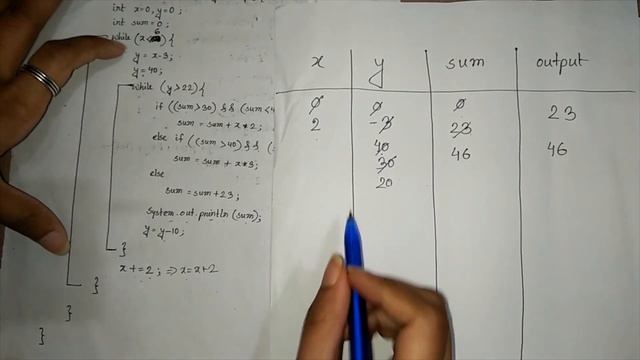 int x=0, y=0;
int sum=0;
while (x<6) {
y = x-3;
y = 40;
while (y>22) {
if ((sum>30) && (sum<4
sum = sum + x*2;
else if ((sum>40) && (
sum = sum + x*3;
else
sum = sum+23;
System.out.println (sum);
y = y-10;
}
x += 2; => x=x+2
}
}
}
x y sum output
0 0 0 23
2 -3 23
40 46 46
30
20